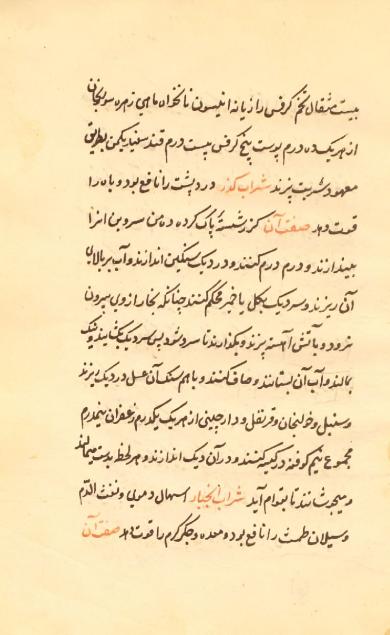 بیست مثقال تخم کرفس رازیانه انیسون نانخواه ماهی زهره سورنجان
از هر یک ده درم پوست بیخ کرفس بیست درم قند سفید یکمن بطریق
معهود شربت پزند شراب گذر درد پشت را نافع بود و باه را
قوت دهد صفت آن گزر شسته پاک کرده ده من سر و بن انرا
بیندازند و درم درم کنند و در دیک سنکین اندازند و آب بر بالای
آن ریزند و سر دیک بکل یا خمیر محکم کنند چنانکه بخار از وی بیرون
نرود و بآتش آهسته پزند و بگذارند تا سرد شود پس سر دیک بکشایند و نیک
بمالند و آب آن بستانند و صاف کنند و با هم سنک آن عسل در دیک ریزند
و سنبل و خولنجان و قرنفل و دارچینی از هر یک یکدرم زعفران نیمدرم
مجموع نیم کوفته در کیسه کنند و در آن دیک اندازند و هر لحظه بدست میمالند
و میجوشانند تا بقوام آید شراب انجبار اسهال دموی و نفث الدم
و سیلان طمث را نافع بود و معده و جکر کرم را قوت دهد صفت آن